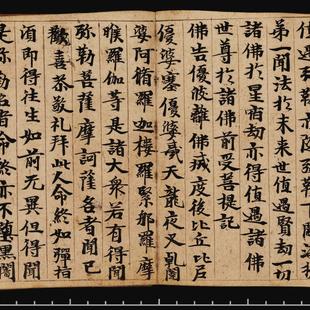 值遇弥勒亦随弥勒下閻浮提
第一聞法於未来世值遇賢劫一切
諸佛於星宿劫亦得值遇諸佛
世尊於諸佛前受菩提記
佛告優波離佛滅度後比丘比尼
優婆塞優婆夷天龍夜叉乹闥
婆阿脩羅迦樓羅緊那羅摩
睺羅伽等是諸大衆若有得聞
弥勒菩薩摩訶薩名者聞已
歡喜恭敬礼拜此人命終如彈指
湏即得往生如前无異但得聞
是弥勒名者命終亦不墮黑闇